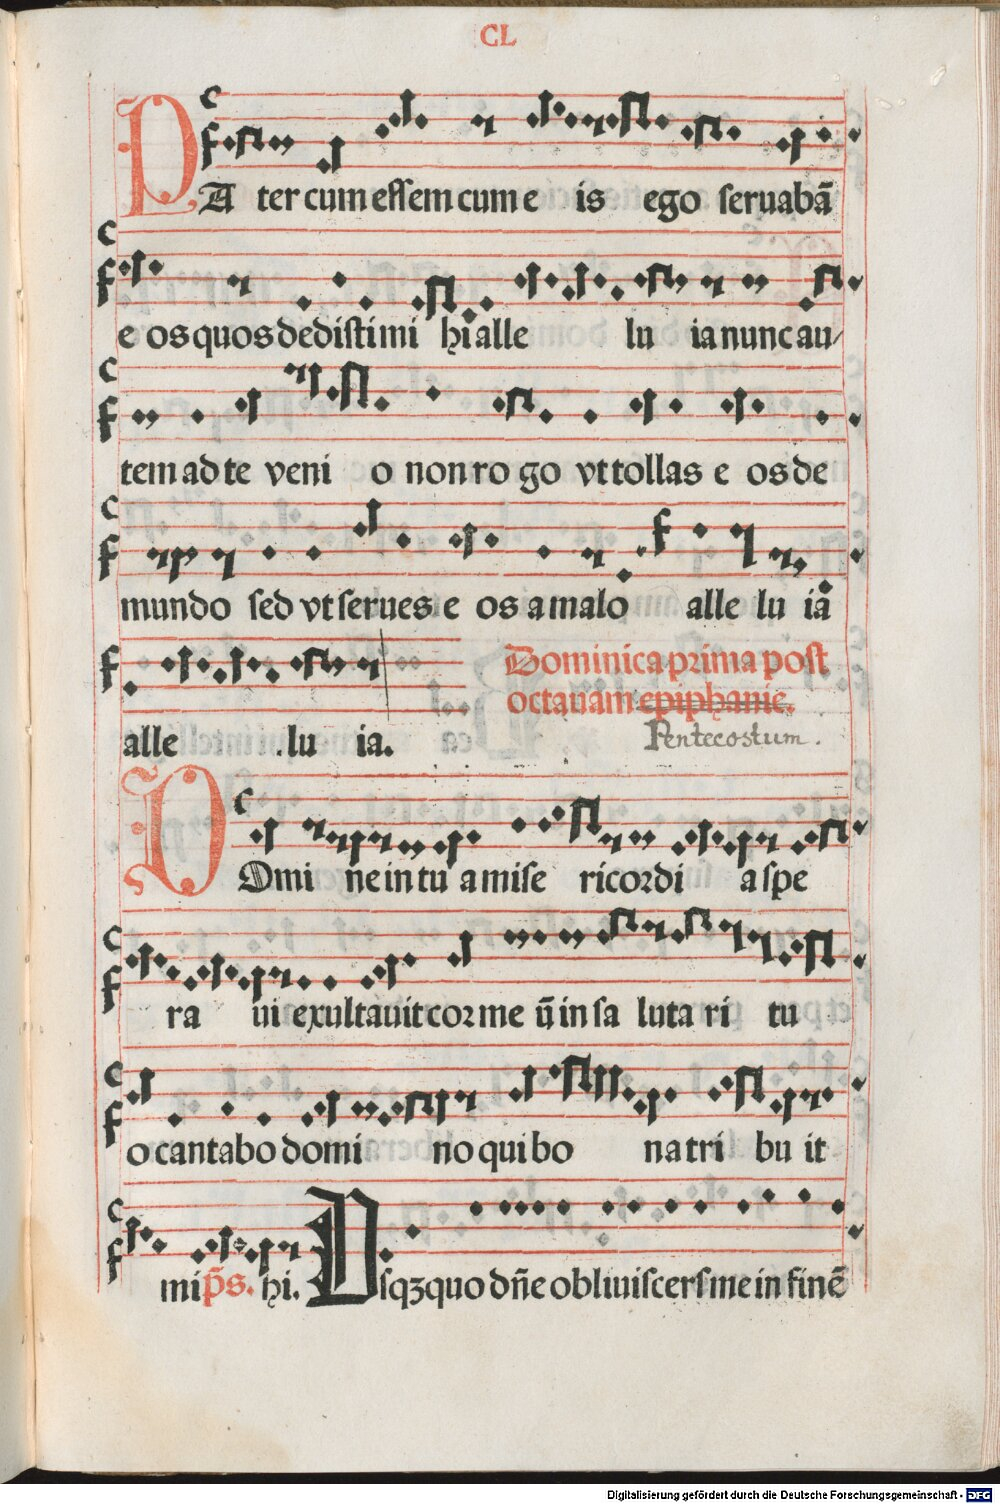 CL
PA ter cum essem cum e is ego seruabā
e os quos dedisti mi hi alle lu ia nunc au/
tem ad te veni o non ro go vt tollas e os de
mundo sed vt serues e os a malo alle lu ia
alle lu ia.
Dominica prima post
octauam epiphanie.
Pentecostum.
DOmi ne in tu a mise ricordi a spe
ra ui exultauit cor me ū in sa luta ri tu
o cantabo domi no qui bo na tri bu it
mi p̄s. hi. Vsqꝫquo dn̄e obliuiscers me in finē
Digitalisierung gefördert durch die Deutsche Forschungsgemeinschaft - DFG